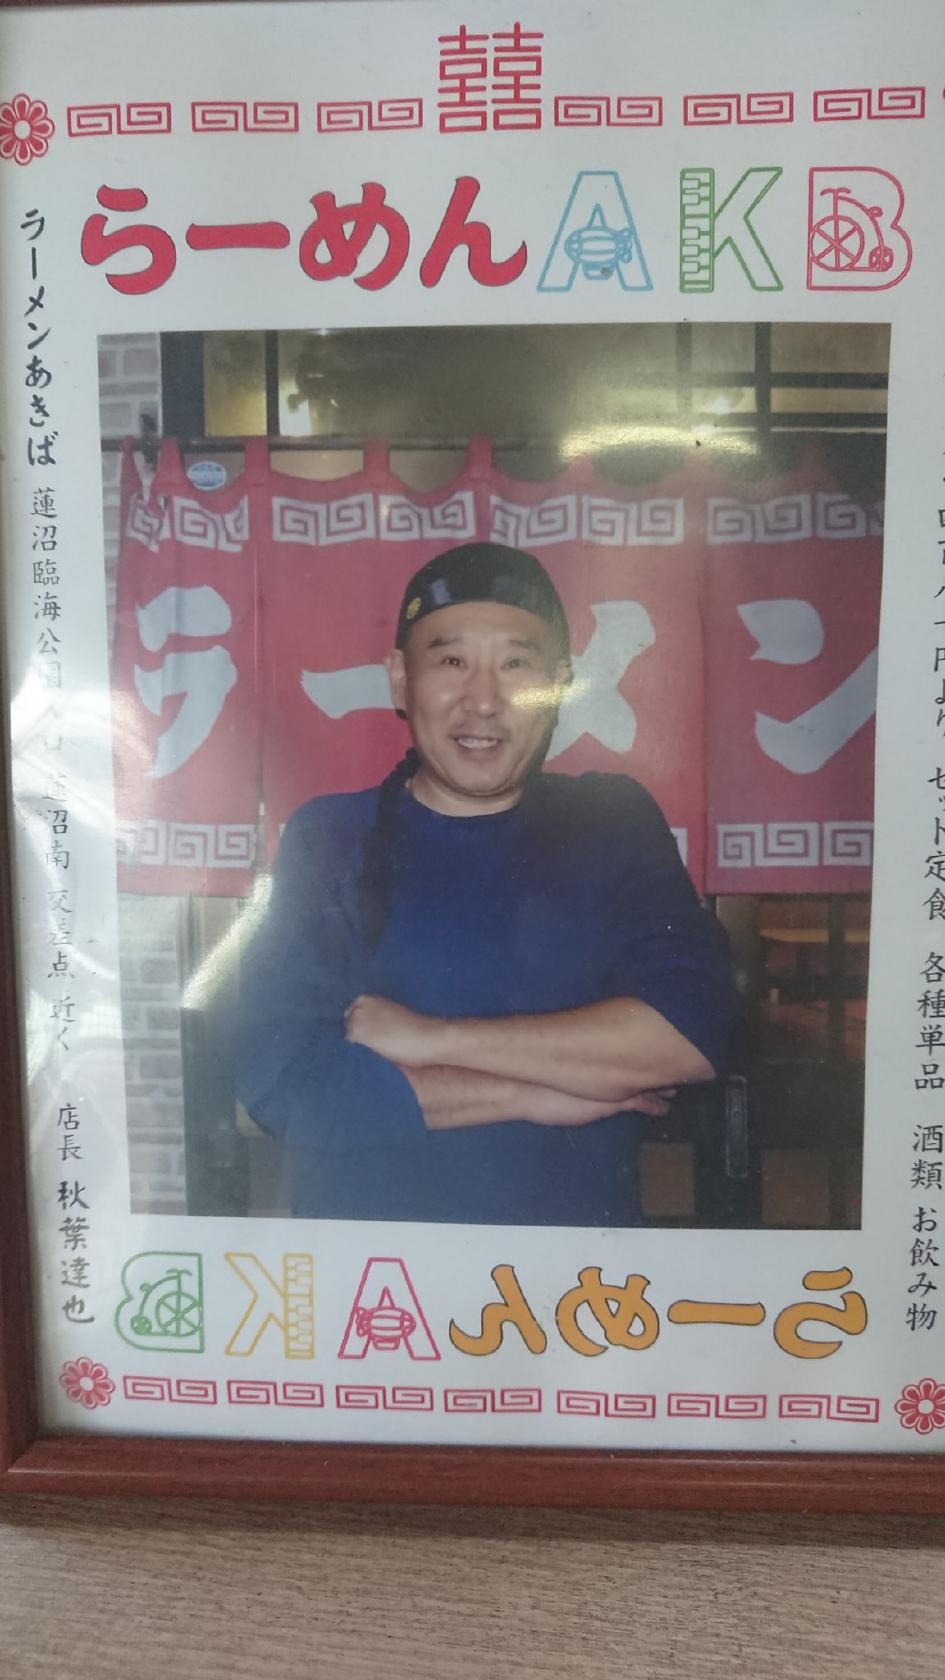 囍
らーめんAKB
ラーメン
ラーメンあきば 蓮沼臨海公園入口 蓮沼南 交差点 近く 店長 秋葉達也
円より セット定食 各種単品 酒類 お飲み物
らーめんAKB